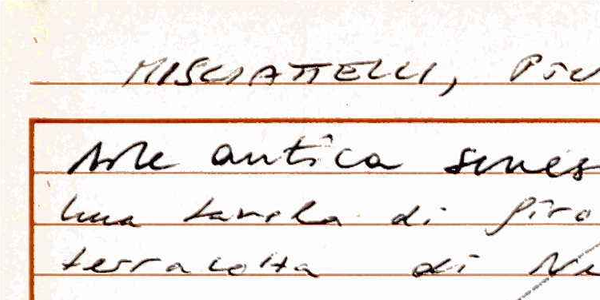 MISCIATTELLI, Pi
Arte antica senes
Una tavola di Giro
terracotta di Ne